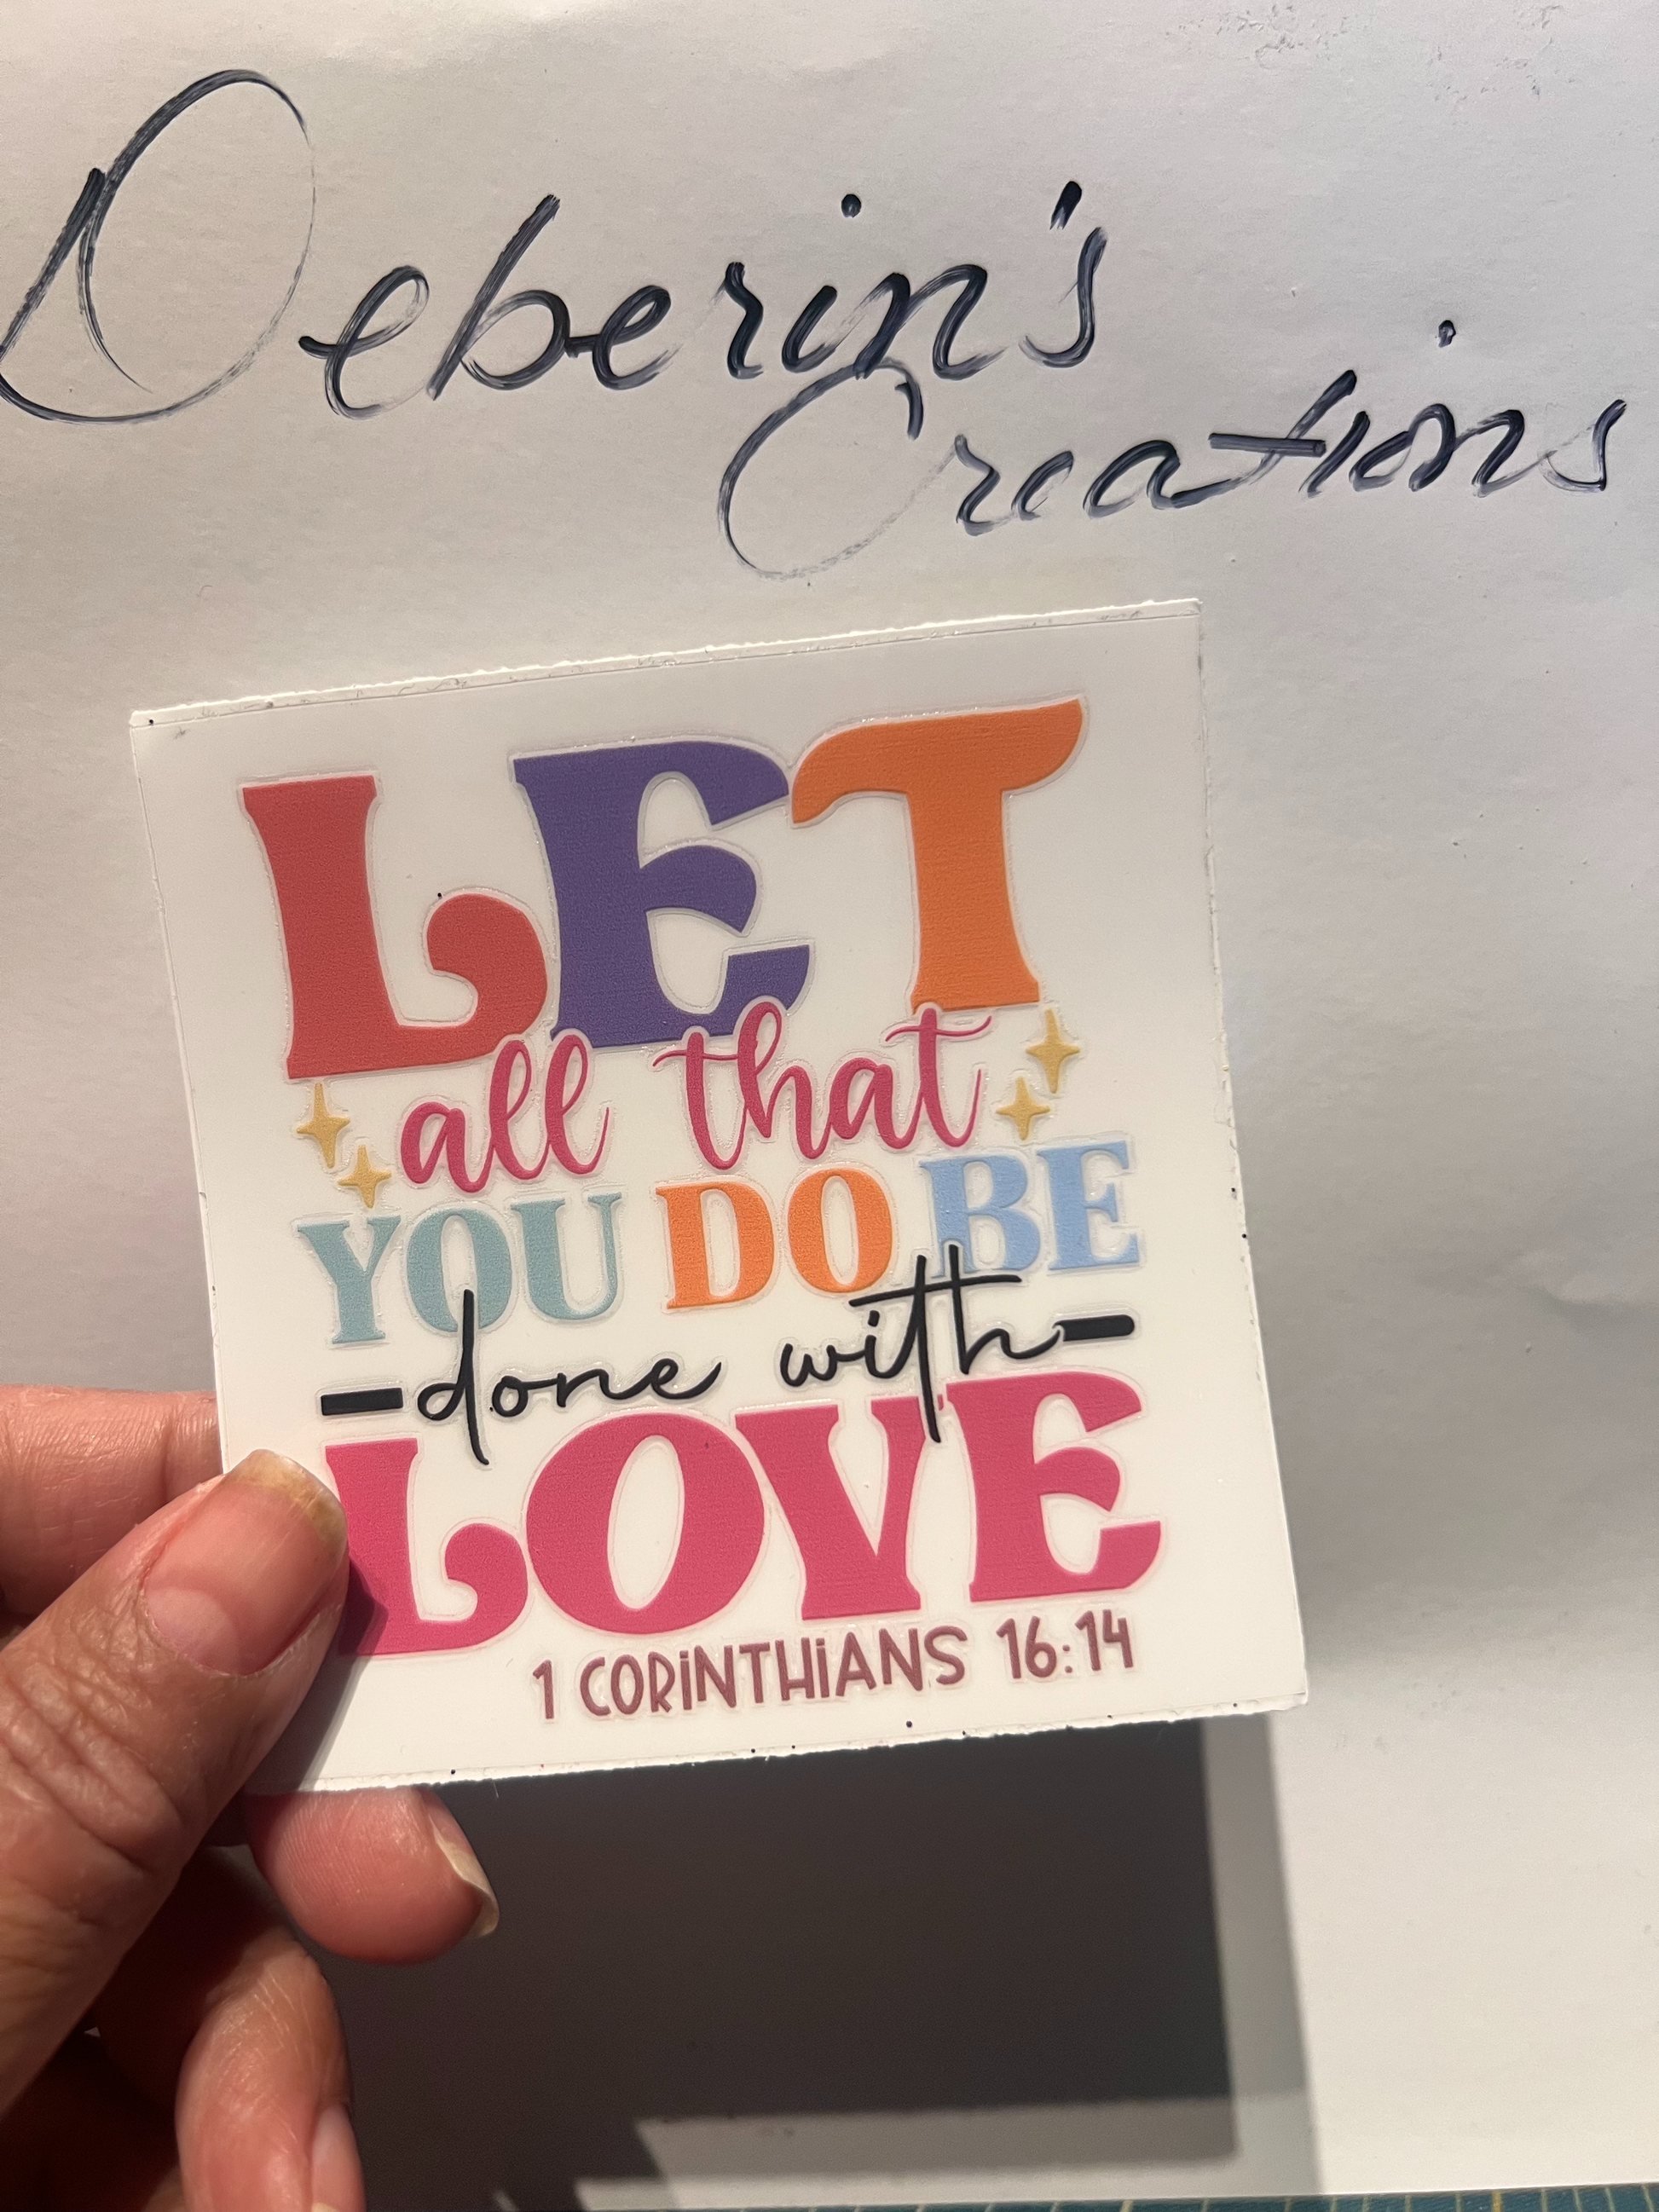 Deberin's
Creations
LET
all that
YOU DO BE
done with
LOVE
1 CORiNTHiANS 16:14